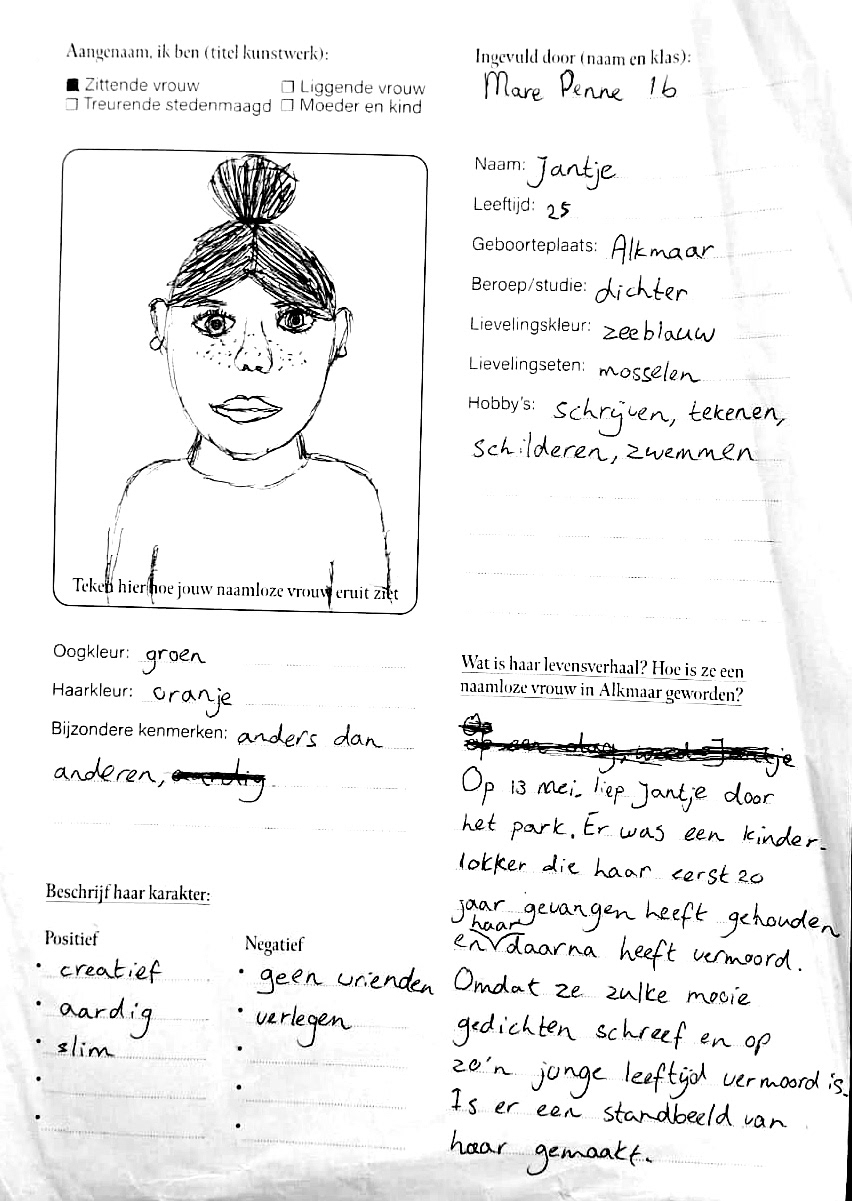 Aangenaam, ik ben (titel kunstwerk):
Zittende vrouw
Liggende vrouw
Treurende stedenmaagd
Moeder en kind
Teken hier hoe jouw naamloze vrouw eruit ziet
Oogkleur: groen
Haarkleur: oranje
Bijzondere kenmerken: anders dan
anderen,
Beschrijf haar karakter:
Positief
• creatief
• aardig
• slim
•
•
Negatief
• geen vrienden
• verlegen
•
•
•
Ingevuld door (naam en klas):
Mare Penne 1b
Naam: Jantje
Leeftijd: 25
Geboorteplaats: Alkmaar
Beroep/studie: dichter
Lievelingskleur: zeeblauw
Lievelingseten: mosselen
Hobby's: schrijven, tekenen,
schilderen, zwemmen
Wat is haar levensverhaal? Hoe is ze een
naamloze vrouw in Alkmaar geworden?
Op 13 mei. liep Jantje door
het park. Er was een kinder-
lokker die haar eerst 20
jaar gevangen heeft gehouden
en haar daarna heeft vermoord.
Omdat ze zulke mooie
gedichten schreef en op
zo'n jonge leeftijd vermoord is.
Is er een standbeeld van
haar gemaakt.